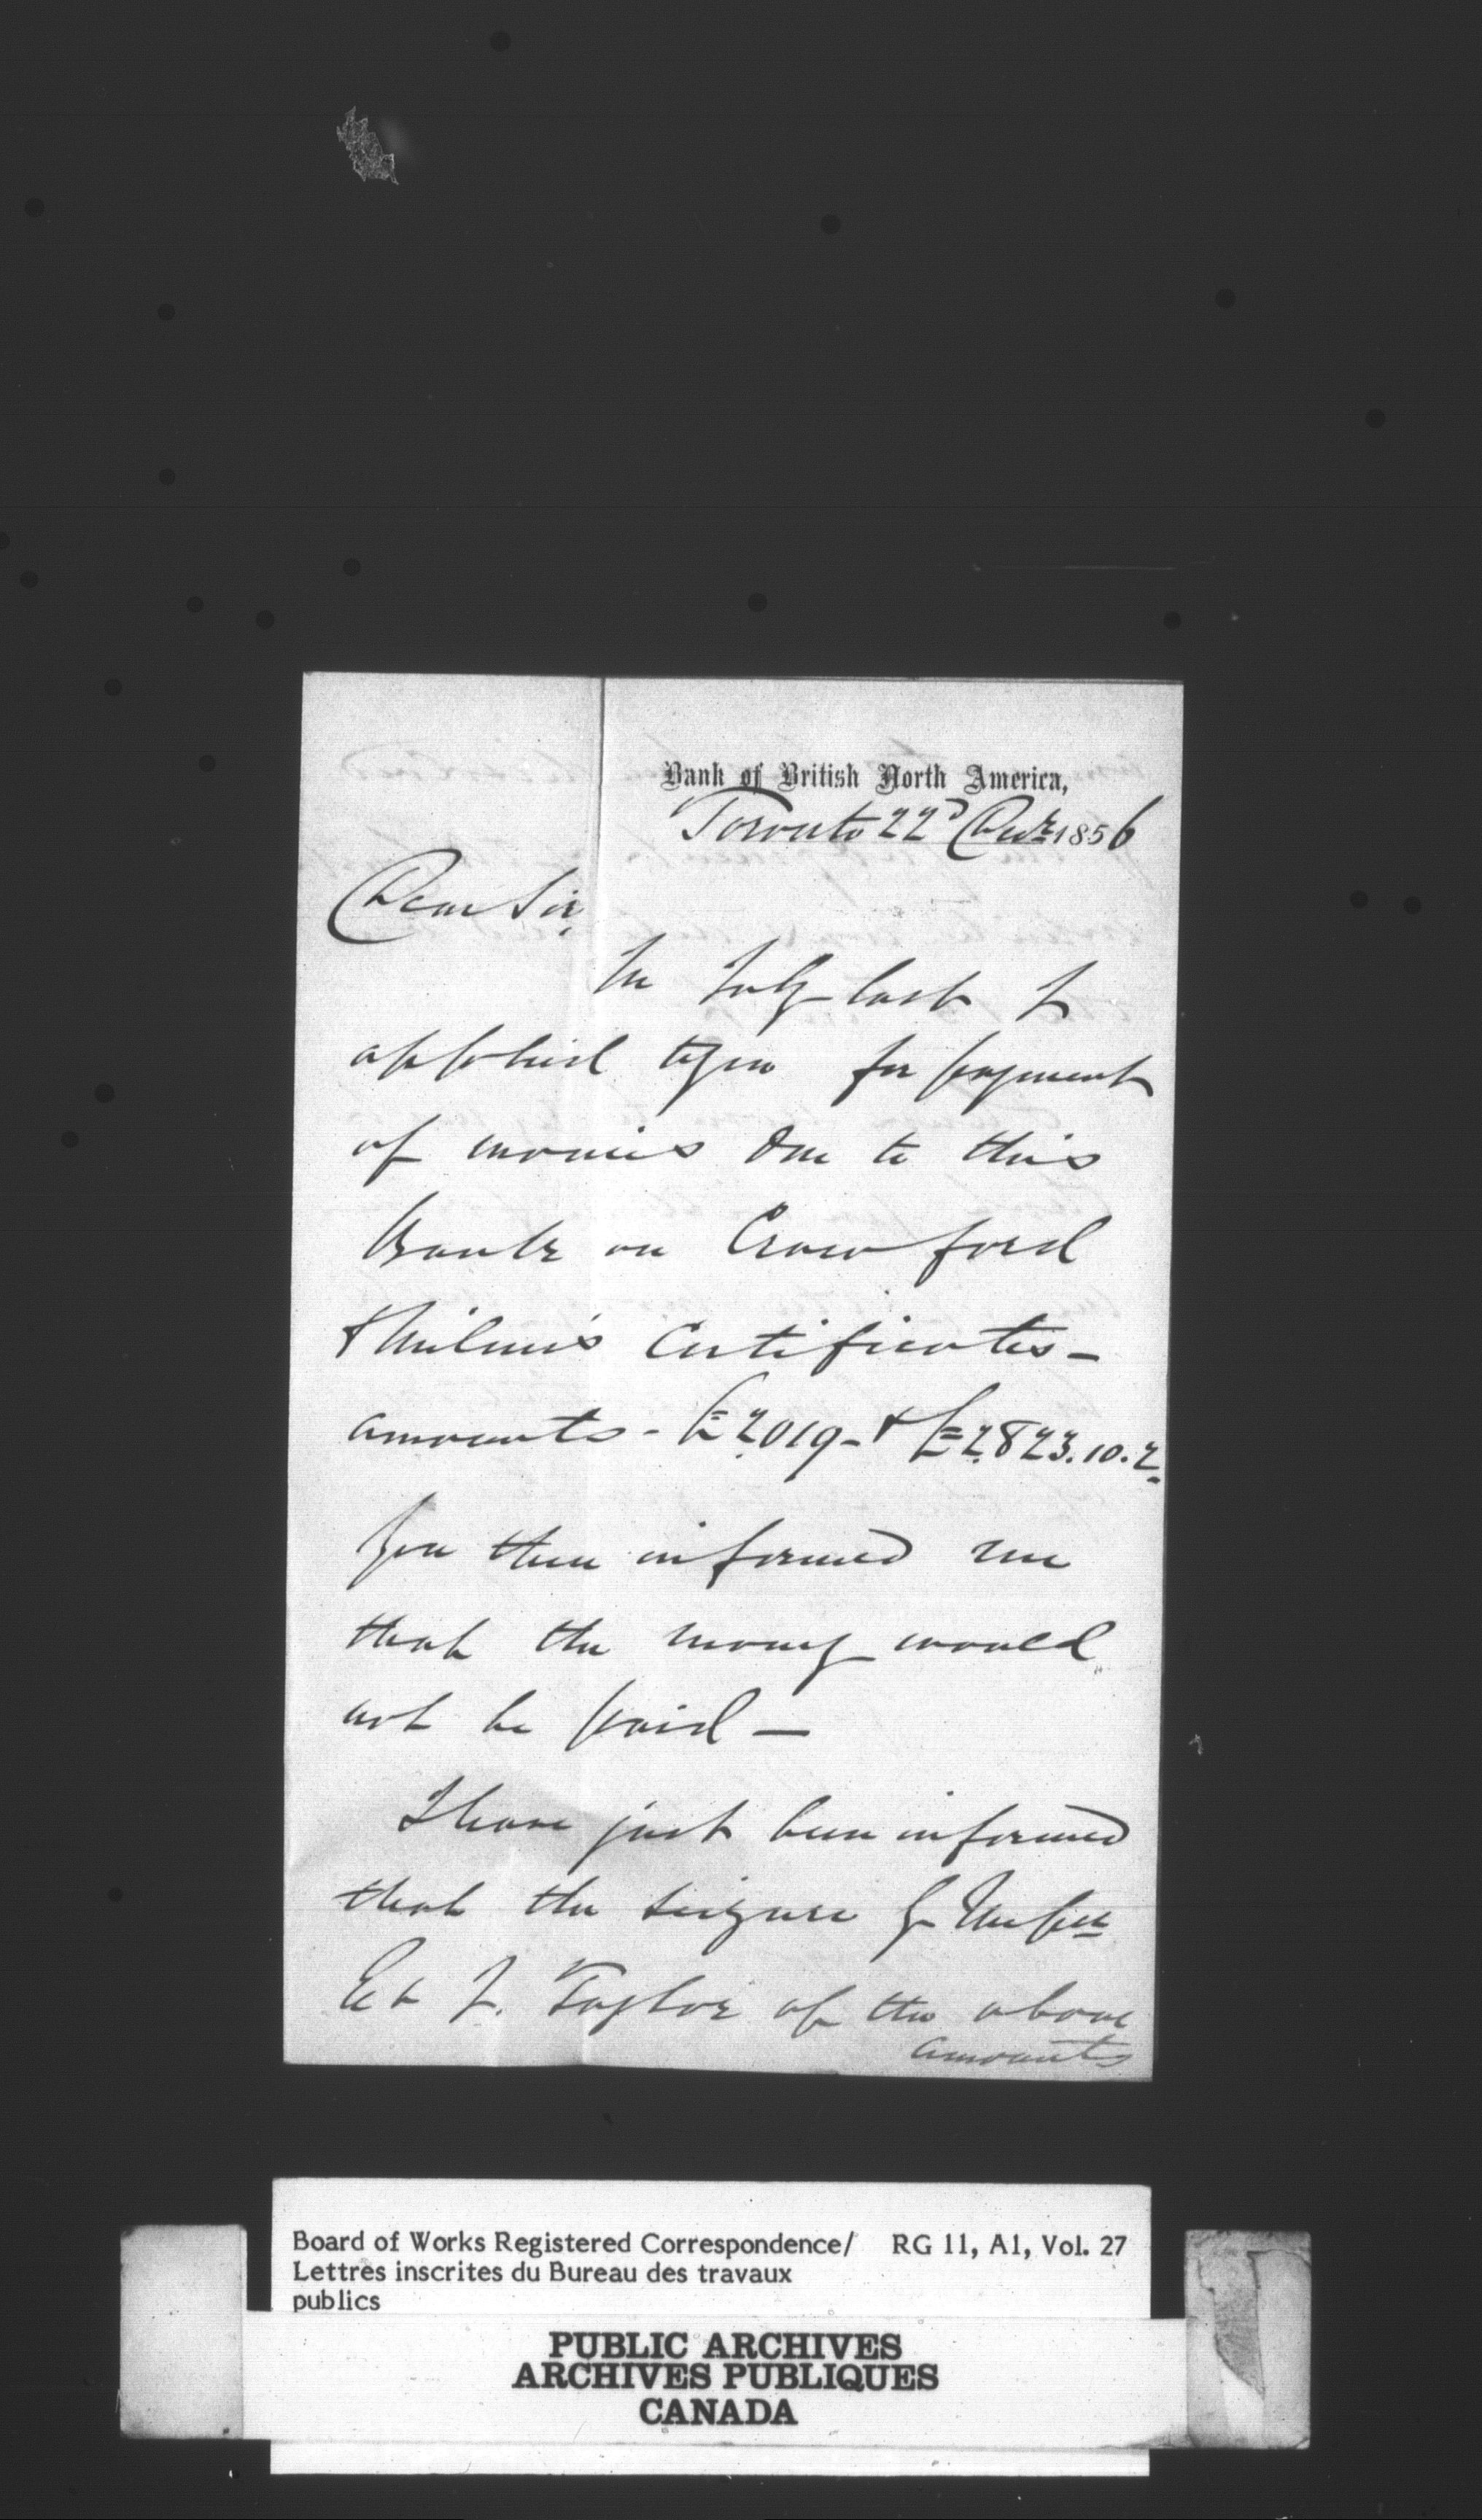 Bank of British North America,
Toronto 22d Decr 1856
Dear Sir,
In July last I
applied to you for payment
of monies due to this
Bank on Crawford
& Milne's Certificates -
amounts - £2019 - & £2823.10.2
You then informed me
that the money would
not be paid -
I have just been informed
that the seizure by Messrs
E & J. Taylor of the above
amounts
Board of Works Registered Correspondence/ RG 11, A1, Vol. 27
Lettres inscrites du Bureau des travaux
publics
PUBLIC ARCHIVES
ARCHIVES PUBLIQUES
CANADA